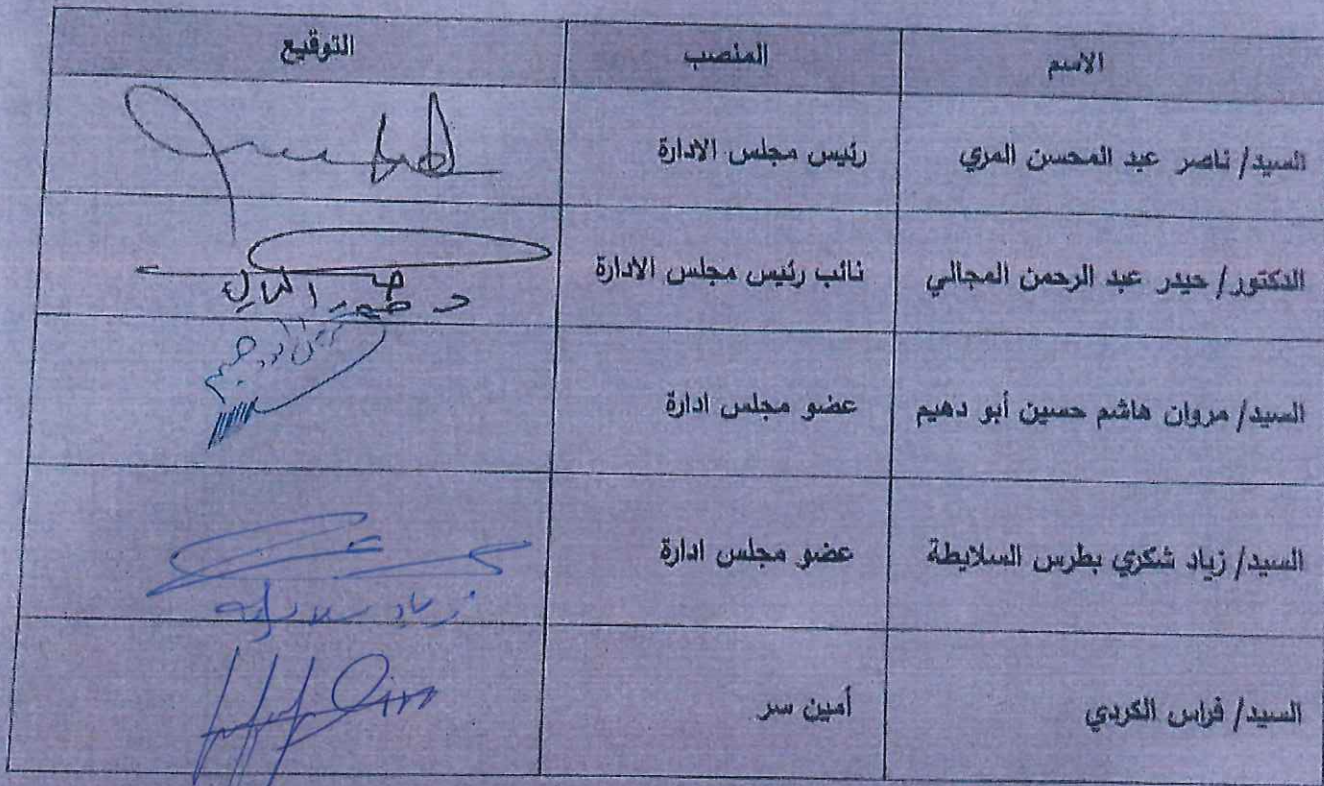 الاسم المنصب التوقيع
السيد/ ناصر عبد المحسن المري رئيس مجلس الادارة
الدكتور/ حيدر عبد الرحمن المجالي نائب رئيس مجلس الادارة
السيد/ مروان هاشم حسين أبو دهيم عضو مجلس ادارة
السيد/ زياد شكري بطرس السلايطة عضو مجلس ادارة
السيد/ فراس الكردي أمين سر